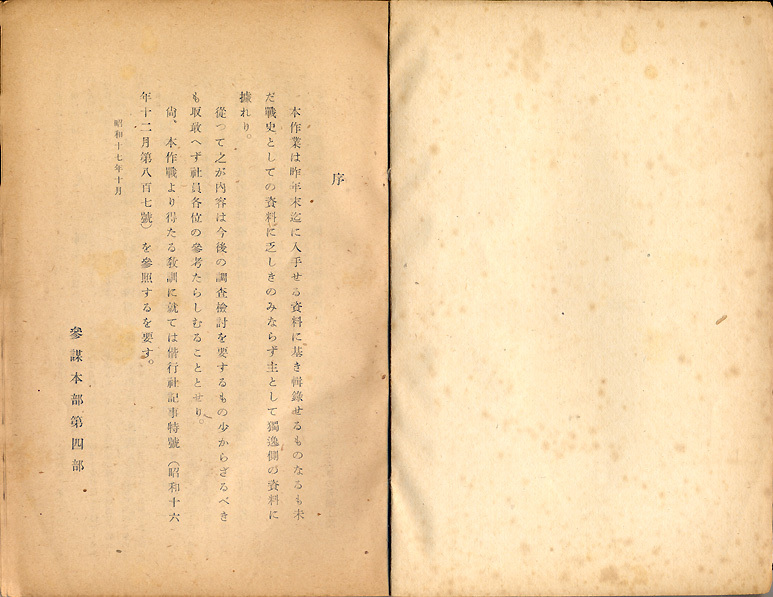 序
本作業は昨年末迄に入手せる資料に基き輯錄せるものなるも未
だ戰史としての資料に乏しきのみならず主として獨逸側の資料に
據れり。
從つて之が內容は今後の調査檢討を要するもの少からざるべき
も取敢へず社員各位の參考たらしむることとせり。
尙、本作戰より得たる敎訓に就ては偕行社記事特號（昭和十六
年十二月第八百七號）を參照するを要す。
昭和十七年十月
參謀本部第四部